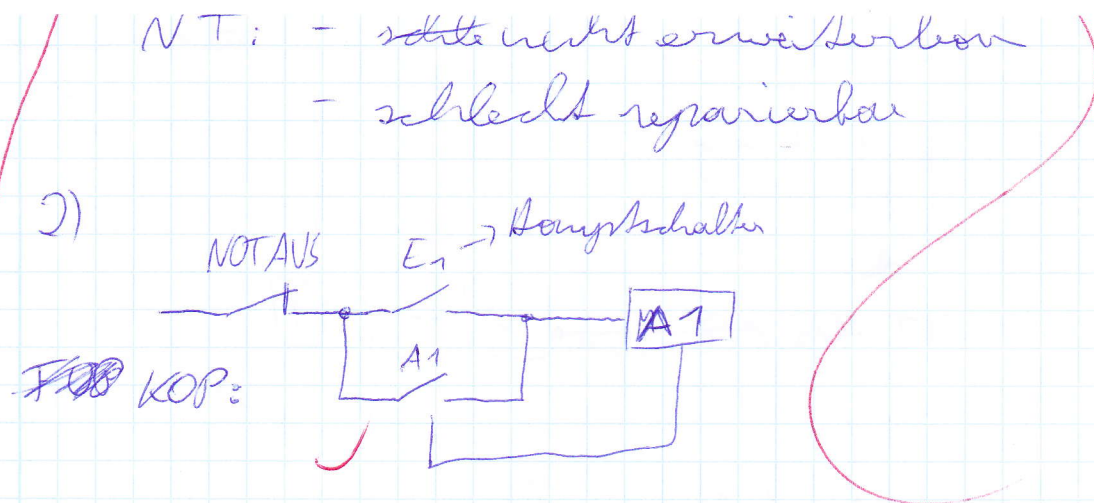 NT: - nicht erweiterbar
- schlecht reparierbar
2)
NOTAUS E1 → Hauptschalter
A1
A1
KOP: